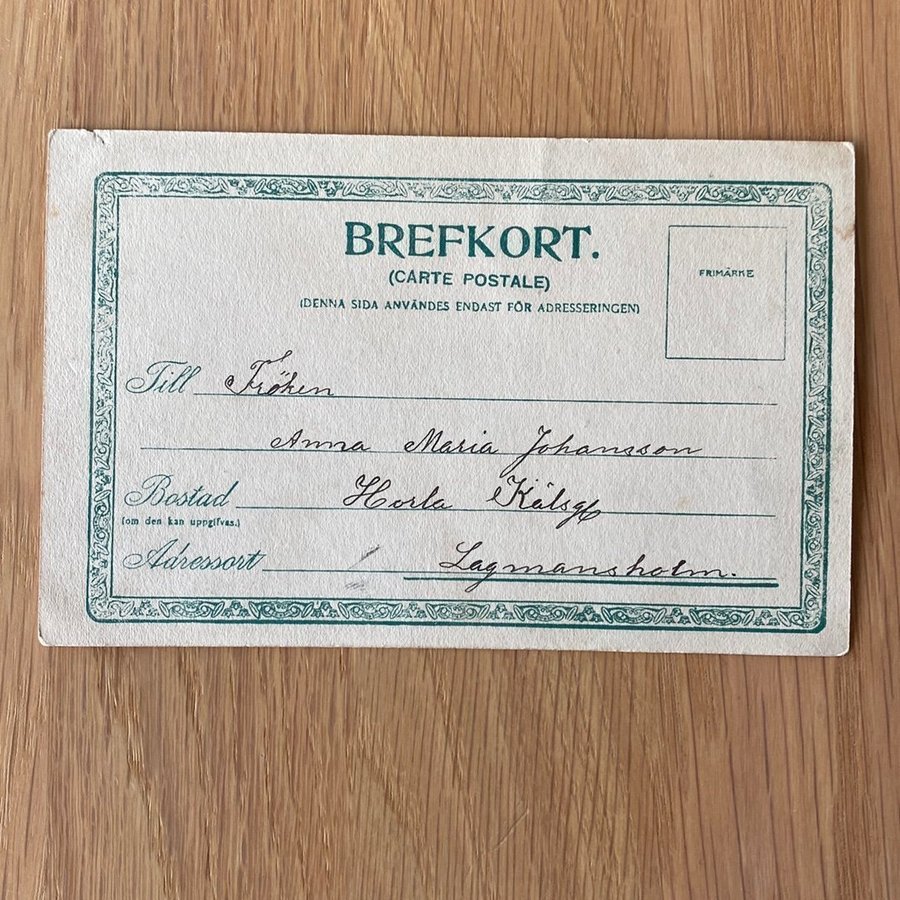 BREFKORT.
(CARTE POSTALE)
(DENNA SIDA ANVÄNDES ENDAST FÖR ADRESSERINGEN)
FRIMÄRKE
Till Fröken
Anna Maria Johansson
Bostad Horla
(om den kan uppgifvas.)
Adressort Lagmansholm.